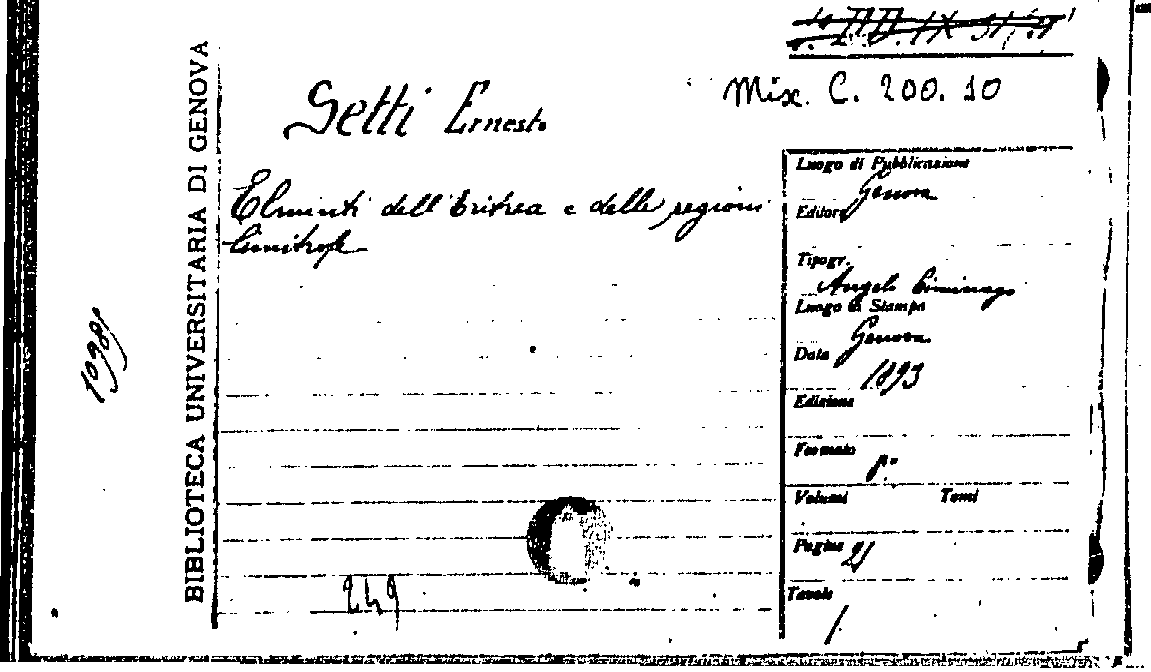 Mix. C. 200. 10
Setti Ernesto
Elminti dell'Eritrea e delle regioni
limitrofe
BIBLIOTECA UNIVERSITARIA DI GENOVA
Luogo di Pubblicazione
Genova
Editore
Tipogr.
Angelo Ciminago
Luogo di Stampa
Genova
Data
1893
Edizione
Formato
8°
Volumi Tomi
Pagine 21
Tavole
1
249